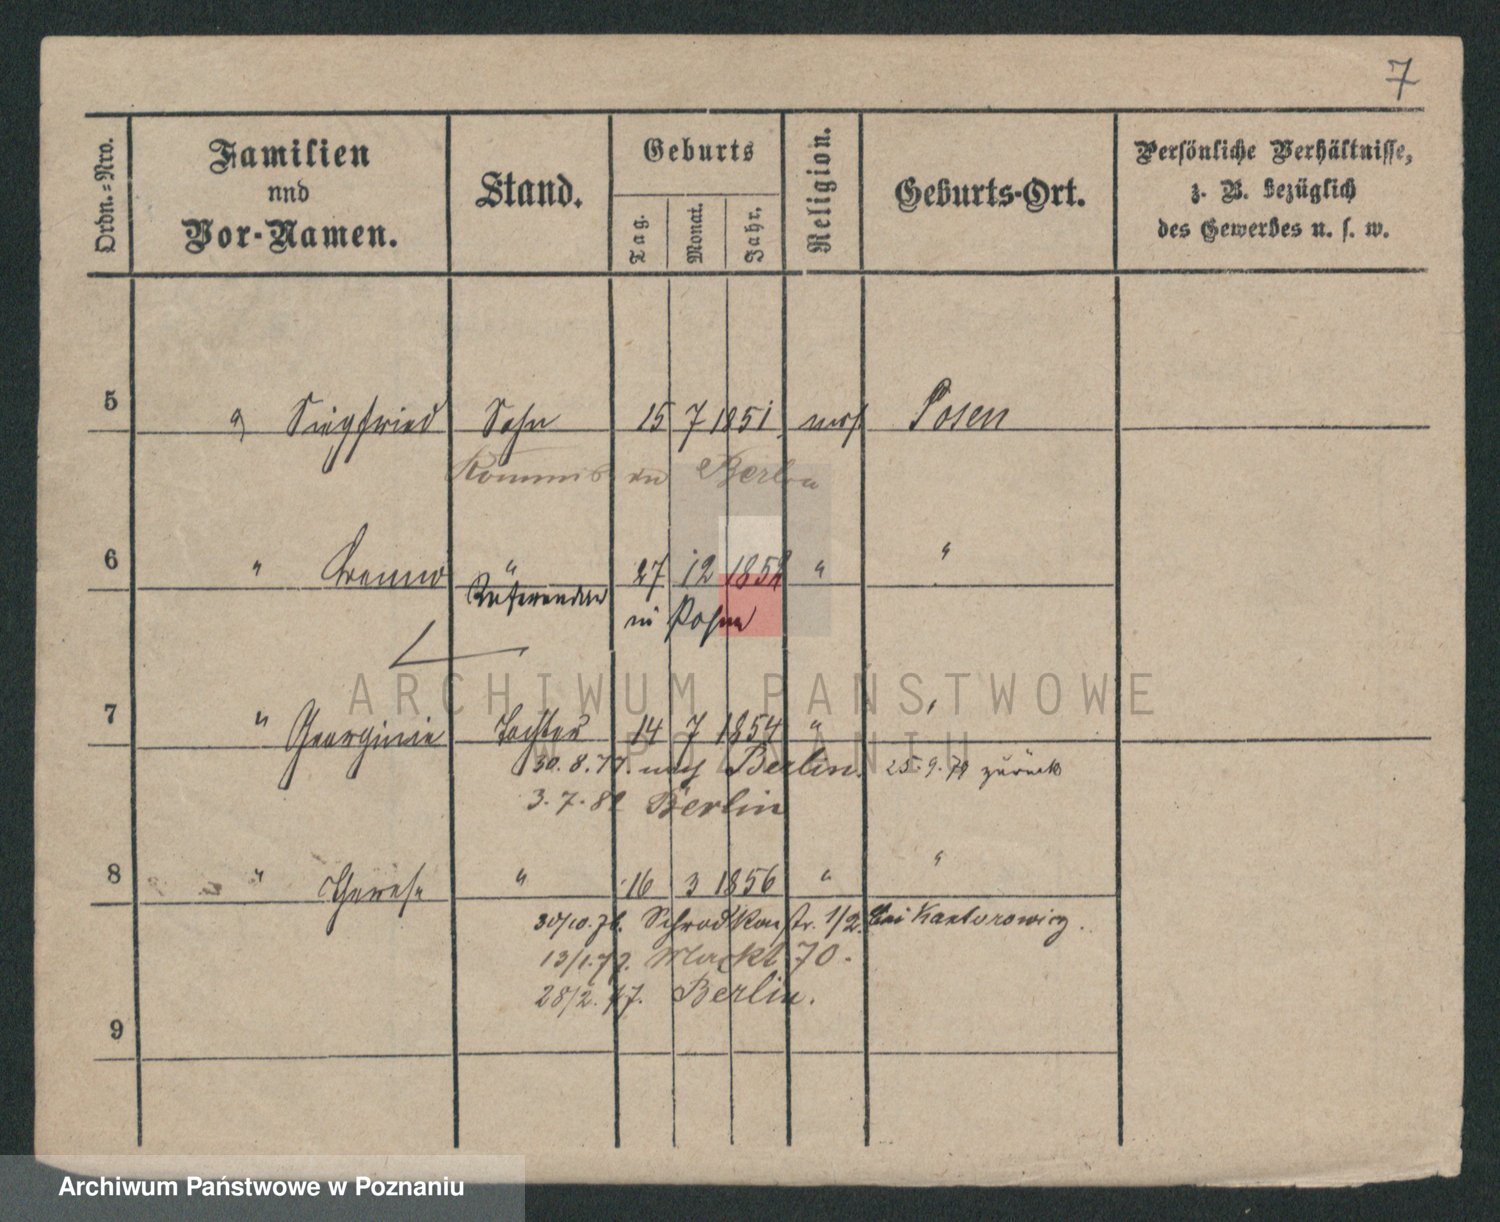 7
Ordn.=Nro.
Familien
und
Vor-Namen.
Stand.
Geburts
Tag.
Monat.
Jahr.
Religion.
Geburts-Ort.
Persönliche Verhältnisse,
z. B. bezüglich
des Gewerbes u. s. w.
5 Siegfried Sohn 15 7 1851 mos Posen
Kommis in Berlin
6 " Benno " 27 12 1852 " "
Referendar in Posen
ARCHIWUM PAŃSTWOWE
W POZNANIU
7 " Georginie Tochter 14 7 1854 " "
30.8.77. nach Berlin. 25.9.79 zurück
3.7.81 Berlin
8 " Therese " 16 3 1856 " "
30/10.76. Schrodkastr. 1/2. bei Kantorowicz.
13/1.77. Markt 70.
28/2.77. Berlin.
9
Archiwum Państwowe w Poznaniu